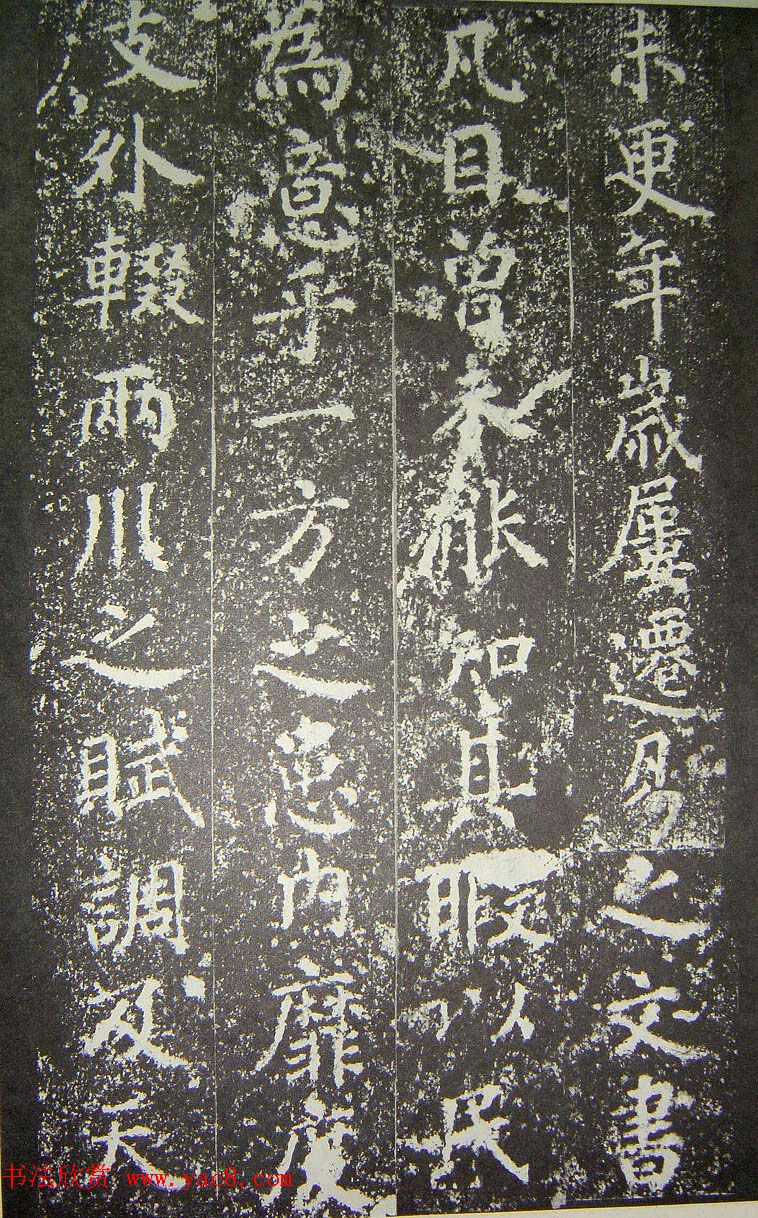 未更年歲屢遷易之文書
凡目曾不能知其暇以民
為意乎一方之患內靡度
支外輟兩川之賦調故天
书法欣赏 www.yac8.com